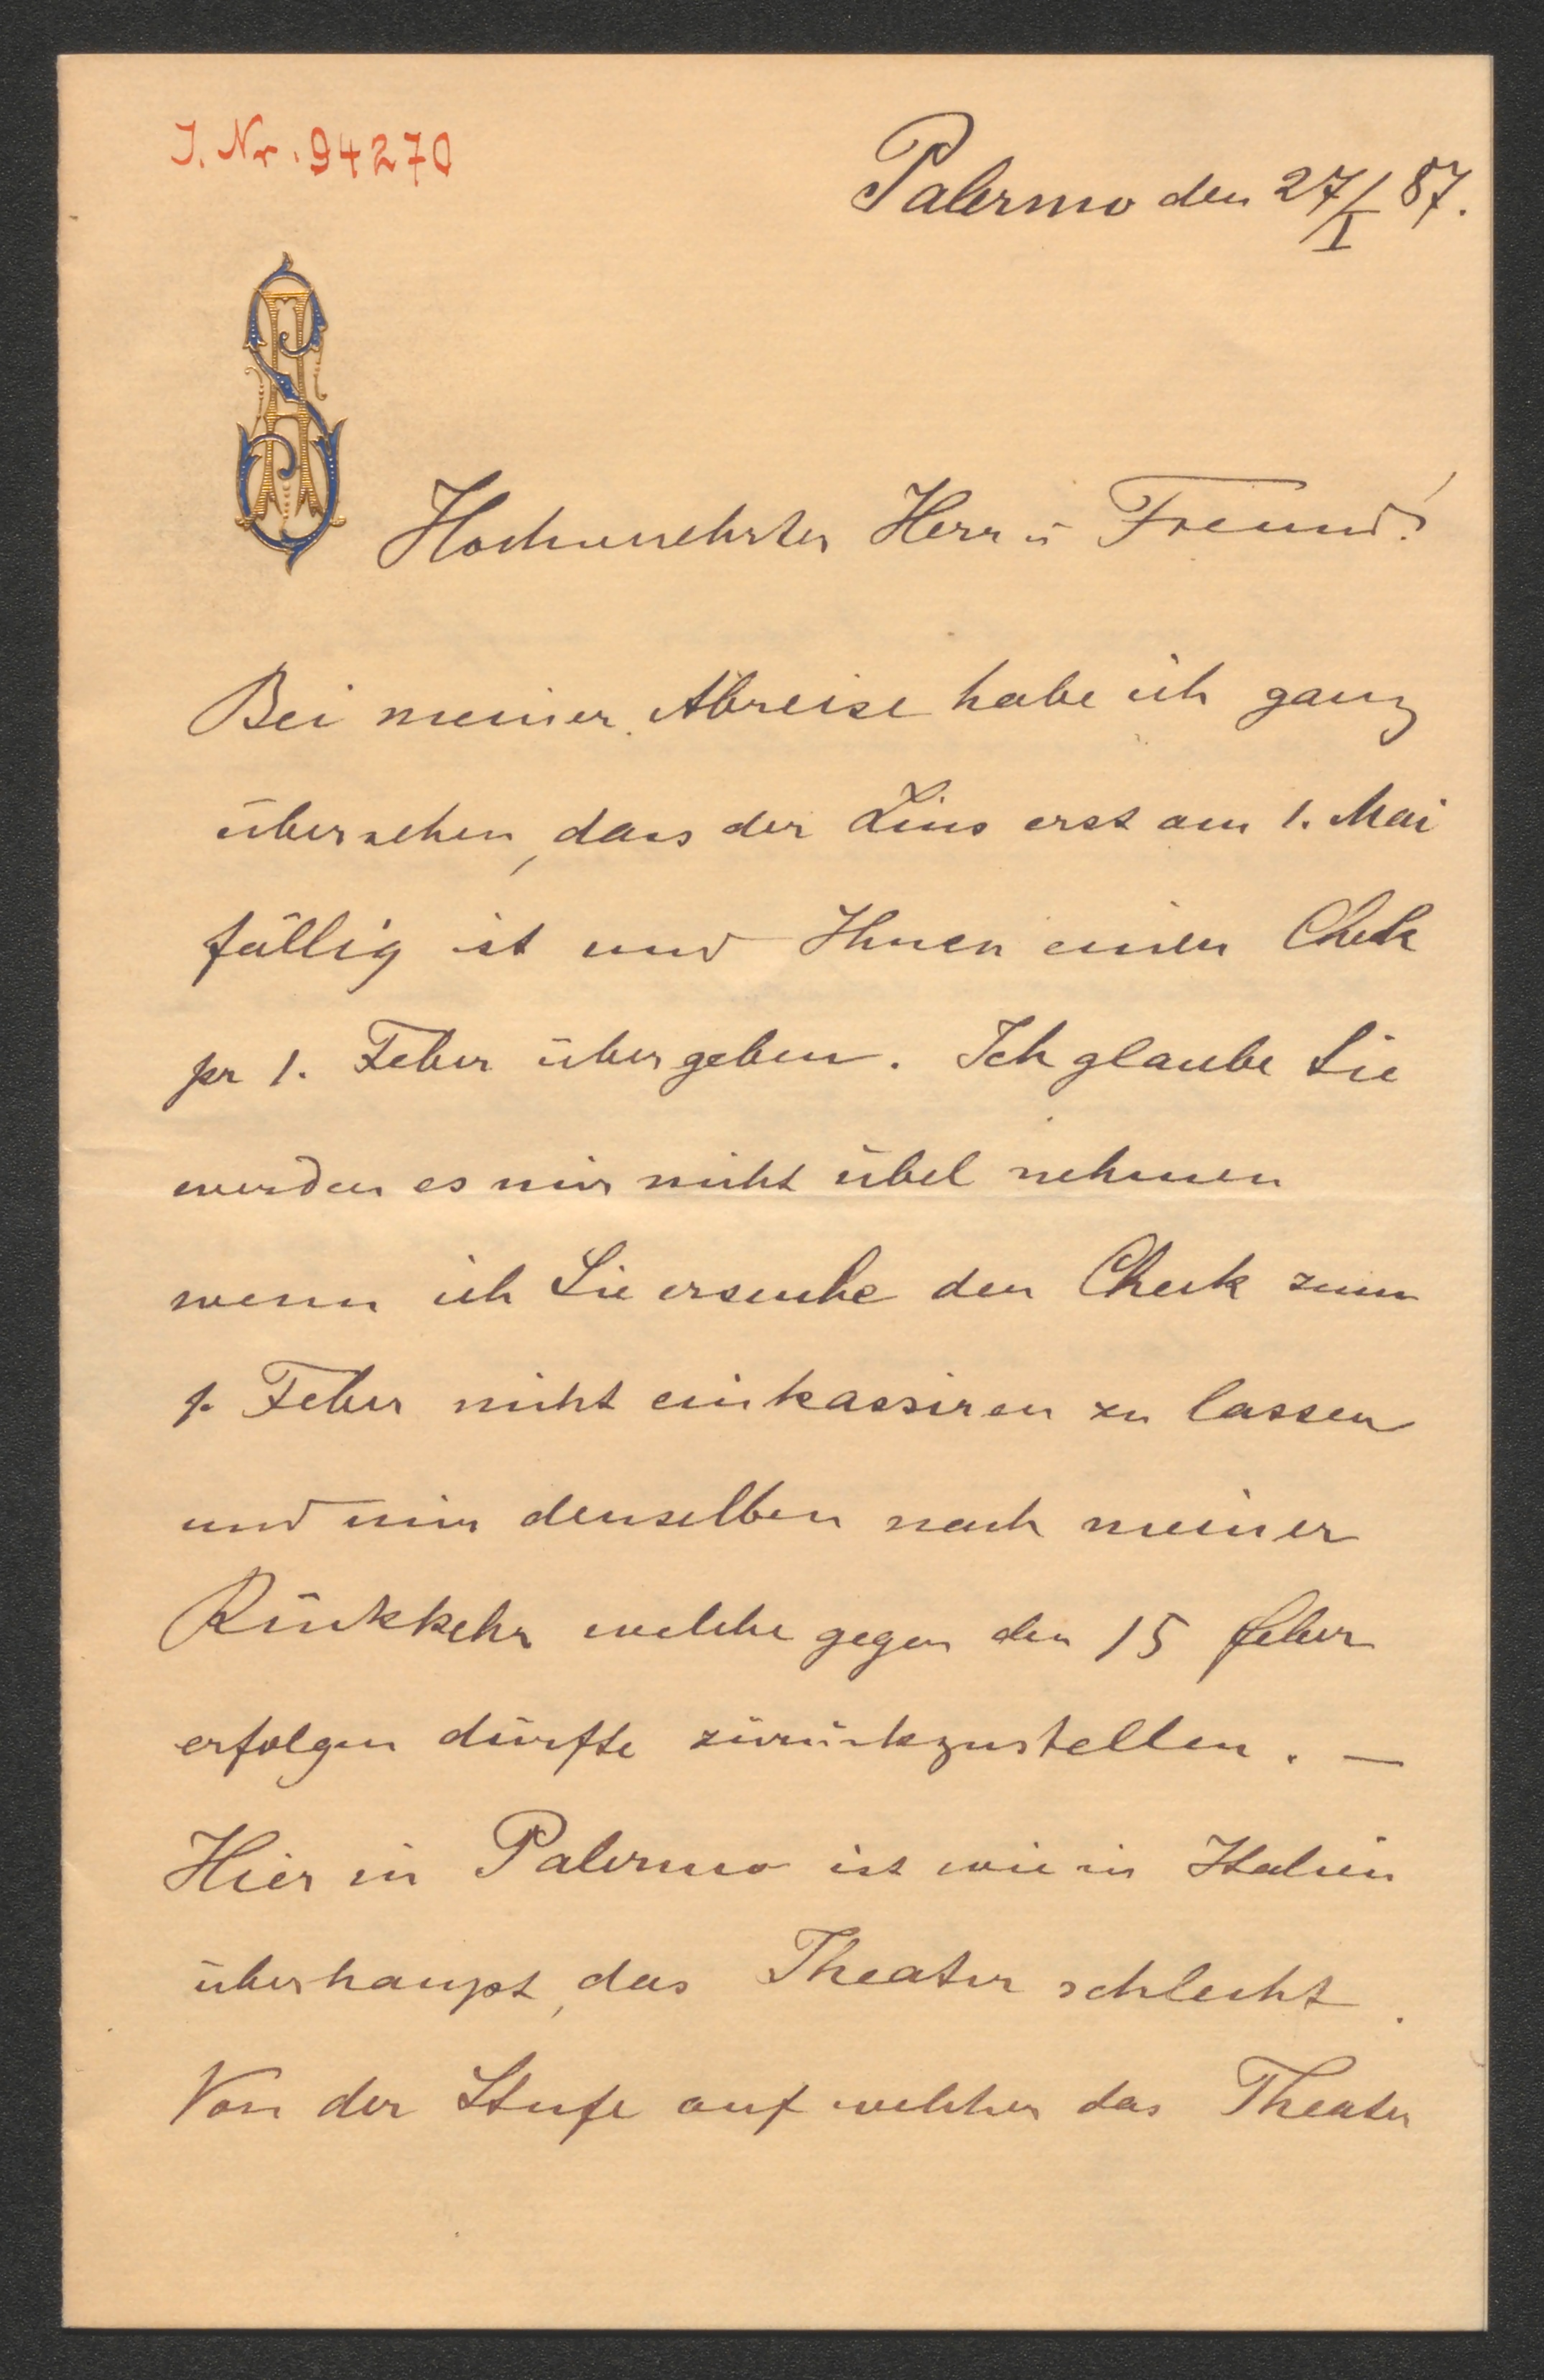 J. Nr. 94270
Palermo den 27/I 87.
Hochverehrter Herr u Freund!
Bei meiner Abreise habe ich ganz
übersehen, dass der Zins erst am 1. Mai
fällig ist und Ihnen einen Check
pr 1. Feber übergeben. Ich glaube Sie
werden es mir nicht übel nehmen
wenn ich Sie ersuche den Check zum
1. Feber nicht einkassiren zu lassen
und mir denselben nach meiner
Rückkehr welche gegen den 15 feber
erfolgen dürfte zurückzustellen. —
Hier in Palermo ist wie in Italien
überhaupt, das Theater schlecht.
Von der Stufe auf welcher das Theater